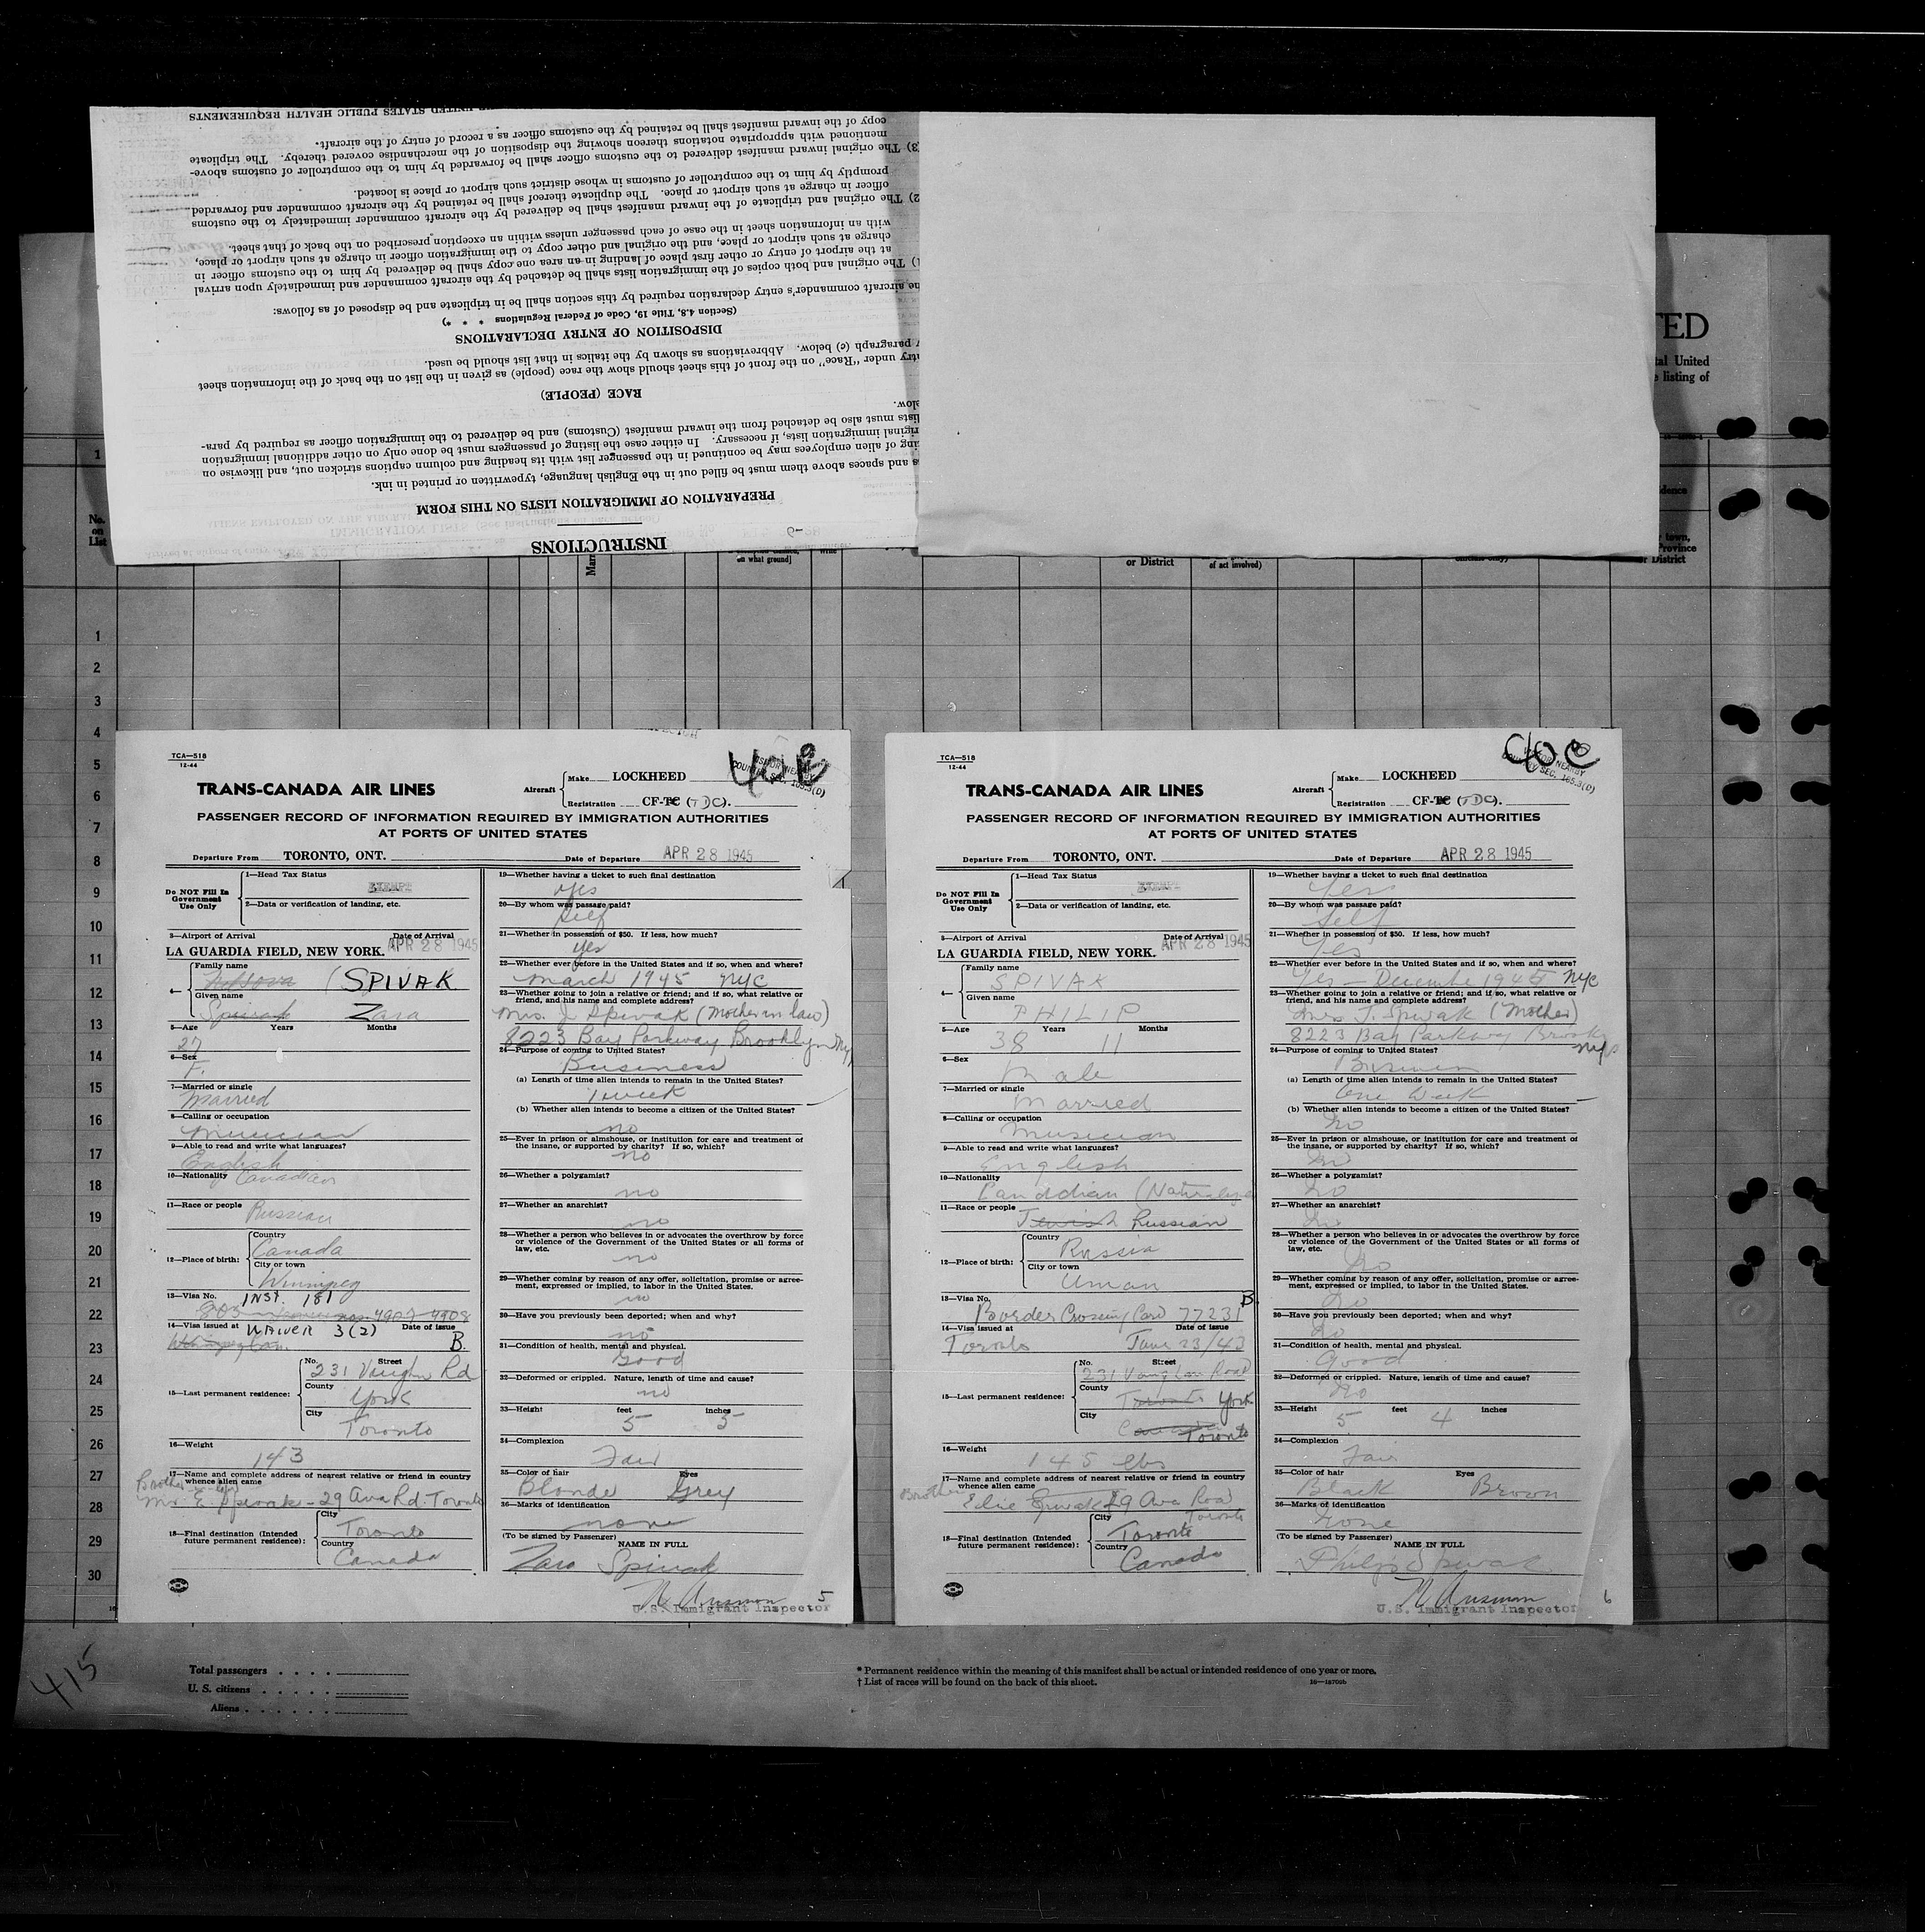 INSTRUCTIONS
PREPARATION OF IMMIGRATION LISTS ON THIS FORM
s and spaces above them must be filled out in the English language, typewritten or printed in ink.
ing of alien employees may be continued in the passenger list with its heading and column captions stricken out, and likewise on
riginal immigration lists, if necessary. In either case the listing of passengers must be done only on other additional immigration
lists must also be detached from the inward manifest (Customs) and be delivered to the immigration officer as required by para-
elow.
RACE (PEOPLE)
try under "Race" on the front of this sheet should show the race (people) as given in the list on the back of the information sheet
y paragraph (c) below. Abbreviations as shown by the italics in that list should be used.
DISPOSITION OF ENTRY DECLARATIONS
(Section 4.8, Title 19, Code of Federal Regulations * * *)
he aircraft commander's entry declaration required by this section shall be in triplicate and be disposed of as follows:
1) The original and both copies of the immigration lists shall be detached by the aircraft commander and immediately upon arrival
at the airport of entry or other first place of landing in an area one copy shall be delivered by him to the customs officer in
charge at such airport or place, and the original and other copy to the immigration officer in charge at such airport or place,
with an information sheet in the case of each passenger unless within an exception prescribed on the back of that sheet.
2) The original and triplicate of the inward manifest shall be delivered by the aircraft commander immediately to the customs
officer in charge at such airport or place. The duplicate thereof shall be retained by the aircraft commander and forwarded
promptly by him to the comptroller of customs in whose district such airport or place is located.
3) The original inward manifest delivered to the customs officer shall be forwarded by him to the comptroller of customs above-
mentioned with appropriate notations thereon showing the disposition of the merchandise covered thereby. The triplicate
copy of the inward manifest shall be retained by the customs officer as a record of entry of the aircraft.
UNITED STATES PUBLIC HEALTH REQUIREMENTS
TED
tal United
e listing of
1
No.
on
List
or District
of act involved)
on what ground]
town,
Province
or District
1
2
3
4
5
6
7
8
9
10
11
12
13
14
15
16
17
18
19
20
21
22
23
24
25
26
27
28
29
30
TCA—518
12-44
TRANS-CANADA AIR LINES
Aircraft
Make LOCKHEED
Registration CF-TC (TDC).
PASSENGER RECORD OF INFORMATION REQUIRED BY IMMIGRATION AUTHORITIES
AT PORTS OF UNITED STATES
Departure From TORONTO, ONT. Date of Departure APR 28 1945
Do NOT Fill In
Government
Use Only
1—Head Tax Status
EXEMPT
2—Data or verification of landing, etc.
3—Airport of Arrival Date of Arrival
LA GUARDIA FIELD, NEW YORK. APR 28 1945
4—
Family name
(SPIVAK
Given name
Spivak Zara
5—Age Years Months
27
6—Sex
F.
7—Married or single
Married
8—Calling or occupation
Musician
9—Able to read and write what languages?
English
10—Nationality Canadian
11—Race or people Russian
12—Place of birth:
Country
Canada
City or town
Winnipeg
13—Visa No. INST. 181
14—Visa issued at WAIVER 3(2) Date of issue
B.
15—Last permanent residence:
No. Street
231 Vaughn Rd
County
York
City
Toronto
16—Weight
143
17—Name and complete address of nearest relative or friend in country
whence alien came
Brother-in-law
Mr. E. Spivak - 29 Ava Rd. Toronto
18—Final destination (Intended
future permanent residence):
City
Toronto
Country
Canada
19—Whether having a ticket to such final destination
yes
20—By whom was passage paid?
self
21—Whether in possession of $50. If less, how much?
yes
22—Whether ever before in the United States and if so, when and where?
March 1945 NYC
23—Whether going to join a relative or friend; and if so, what relative or
friend, and his name and complete address?
Mrs. J. Spivak (Mother in law)
8223 Bay Parkway Brooklyn NY
24—Purpose of coming to United States?
Business
(a) Length of time alien intends to remain in the United States?
1 week
(b) Whether alien intends to become a citizen of the United States?
no
25—Ever in prison or almshouse, or institution for care and treatment of
the insane, or supported by charity? If so, which?
no
26—Whether a polygamist?
no
27—Whether an anarchist?
no
28—Whether a person who believes in or advocates the overthrow by force
or violence of the Government of the United States or all forms of
law, etc.
no
29—Whether coming by reason of any offer, solicitation, promise or agree-
ment, expressed or implied, to labor in the United States.
no
30—Have you previously been deported; when and why?
no
31—Condition of health, mental and physical.
Good
32—Deformed or crippled. Nature, length of time and cause?
no
33—Height feet inches
5 5
34—Complexion
Fair
35—Color of hair Eyes
Blonde Grey
36—Marks of identification
none
(To be signed by Passenger) NAME IN FULL
Zara Spivak
U.S. Immigrant Inspector
5
TCA—518
12-44
TRANS-CANADA AIR LINES
Aircraft
Make LOCKHEED
Registration CF-TC (TDC).
PASSENGER RECORD OF INFORMATION REQUIRED BY IMMIGRATION AUTHORITIES
AT PORTS OF UNITED STATES
Departure From TORONTO, ONT. Date of Departure APR 28 1945
Do NOT Fill In
Government
Use Only
1—Head Tax Status
EXEMPT
2—Data or verification of landing, etc.
3—Airport of Arrival Date of Arrival
LA GUARDIA FIELD, NEW YORK. APR 28 1945
4—
Family name
SPIVAK
Given name
PHILIP
5—Age Years Months
38 11
6—Sex
Male
7—Married or single
Married
8—Calling or occupation
Musician
9—Able to read and write what languages?
English
10—Nationality
Canadian (Naturalized
11—Race or people
Jewish Russian
12—Place of birth:
Country
Russia
City or town
Uman
13—Visa No. B.
Border Crossing Card 77231
14—Visa issued at Date of issue
Toronto June 23/43
15—Last permanent residence:
No. Street
231 Vaughan Road
County
Toronto York
City
Canada Toronto
16—Weight
145 lbs
17—Name and complete address of nearest relative or friend in country
whence alien came
Brother
Elie Spivak 29 Ava Road
Toronto
18—Final destination (Intended
future permanent residence):
City
Toronto
Country
Canada
19—Whether having a ticket to such final destination
Yes
20—By whom was passage paid?
Self
21—Whether in possession of $50. If less, how much?
Yes
22—Whether ever before in the United States and if so, when and where?
Yes - December 1945 NYC
23—Whether going to join a relative or friend; and if so, what relative or
friend, and his name and complete address?
Mrs J. Spivak (Mother)
8223 Bay Parkway Brook
NYC
24—Purpose of coming to United States?
Business
(a) Length of time alien intends to remain in the United States?
One Week
(b) Whether alien intends to become a citizen of the United States?
No
25—Ever in prison or almshouse, or institution for care and treatment of
the insane, or supported by charity? If so, which?
No
26—Whether a polygamist?
No
27—Whether an anarchist?
No
28—Whether a person who believes in or advocates the overthrow by force
or violence of the Government of the United States or all forms of
law, etc.
No
29—Whether coming by reason of any offer, solicitation, promise or agree-
ment, expressed or implied, to labor in the United States.
No
30—Have you previously been deported; when and why?
No
31—Condition of health, mental and physical.
Good
32—Deformed or crippled. Nature, length of time and cause?
No
33—Height feet inches
5 4
34—Complexion
Fair
35—Color of hair Eyes
Black Brown
36—Marks of identification
None
(To be signed by Passenger) NAME IN FULL
Philip Spivak
U.S. Immigrant Inspector
6
415
Total passengers
U. S. citizens
Aliens
* Permanent residence within the meaning of this manifest shall be actual or intended residence of one year or more.
† List of races will be found on the back of this sheet.